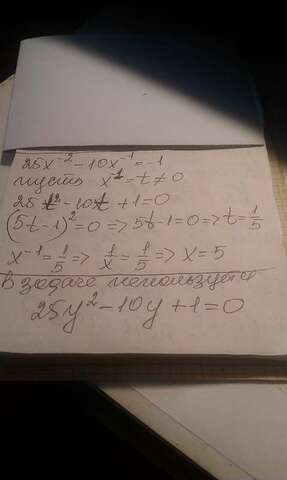 25x⁻² - 10x⁻¹ = -1
пусть x⁻¹ = t ≠ 0
25t² - 10t + 1 = 0
(5t - 1)² = 0 => 5t - 1 = 0 => t = 1/5
x⁻¹ = 1/5 => 1/x = 1/5 => x = 5
в задаче используется
25y² - 10y + 1 = 0